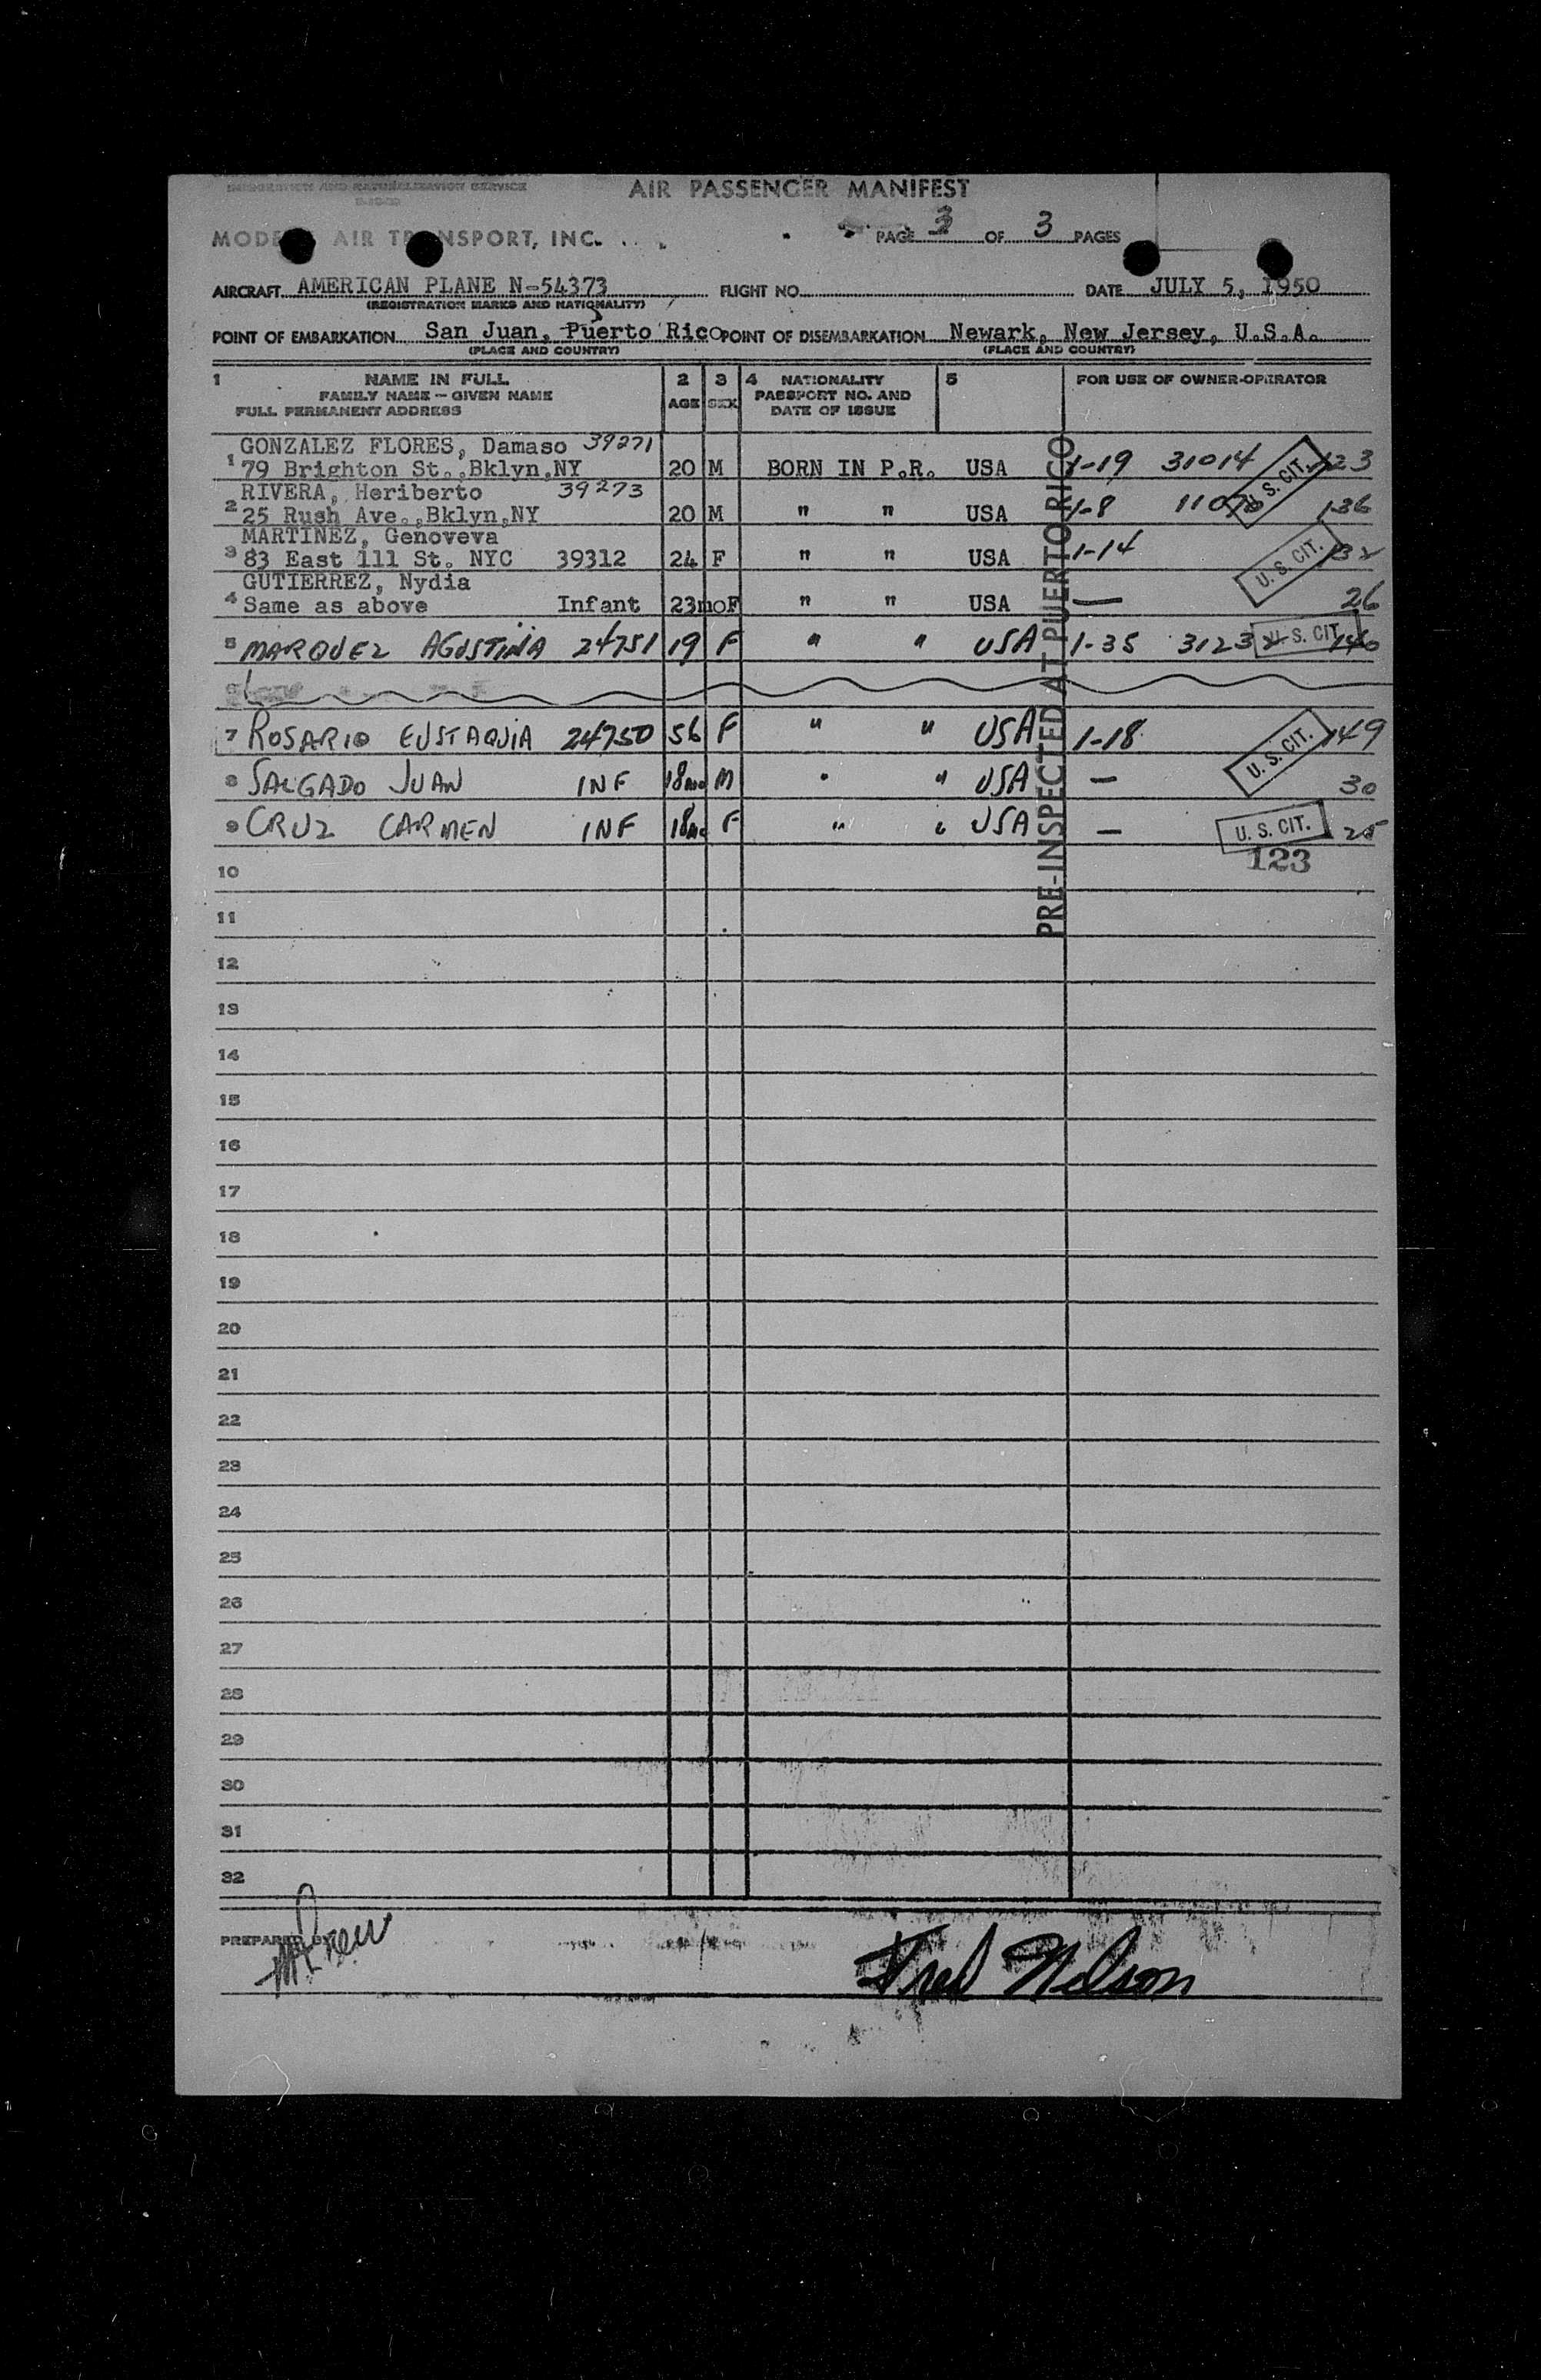 IMMIGRATION AND NATURALIZATION SERVICE
AIR PASSENGER MANIFEST
MODE AIR TR NSPORT, INC.
PAGE 3 OF 3 PAGES
AIRCRAFT AMERICAN PLANE N-54373 FLIGHT NO. DATE JULY 5, 1950
(REGISTRATION MARKS AND NATIONALITY)
POINT OF EMBARKATION San Juan, Puerto Rico POINT OF DISEMBARKATION Newark, New Jersey, U.S.A.
(PLACE AND COUNTRY) (PLACE AND COUNTRY)
1 NAME IN FULL 2 3 4 NATIONALITY 5 FOR USE OF OWNER-OPERATOR
FAMILY NAME — GIVEN NAME AGE SEX PASSPORT NO. AND
FULL PERMANENT ADDRESS DATE OF ISSUE
GONZALEZ FLORES, Damaso 39271
1 79 Brighton St.,Bklyn,NY 20 M BORN IN P.R. USA 1-19 31014 U. S. CIT. 123
RIVERA, Heriberto 39273
2 25 Rush Ave.,Bklyn,NY 20 M " " USA 1-8 136
MARTINEZ, Genoveva
3 83 East 111 St. NYC 39312 24 F " " USA 1-14 U. S. CIT. 132
GUTIERREZ, Nydia
4 Same as above Infant 23mo F " " USA — 26
5 MARQUEZ AGUSTINA 24751 19 F " " USA 1-35 3123 U. S. CIT. 140
6
7 ROSARIO EUSTAQUIA 24750 56 F " " USA 1-18 U. S. CIT. 149
8 SALGADO JUAN INF 18mo M " " USA — 30
9 CRUZ CARMEN INF 18mo F " " USA — U. S. CIT. 25
123
PRE-INSPECTED AT PUERTO RICO
10
11
12
13
14
15
16
17
18
19
20
21
22
23
24
25
26
27
28
29
30
31
32
PREPARED BY
Fred Nelson